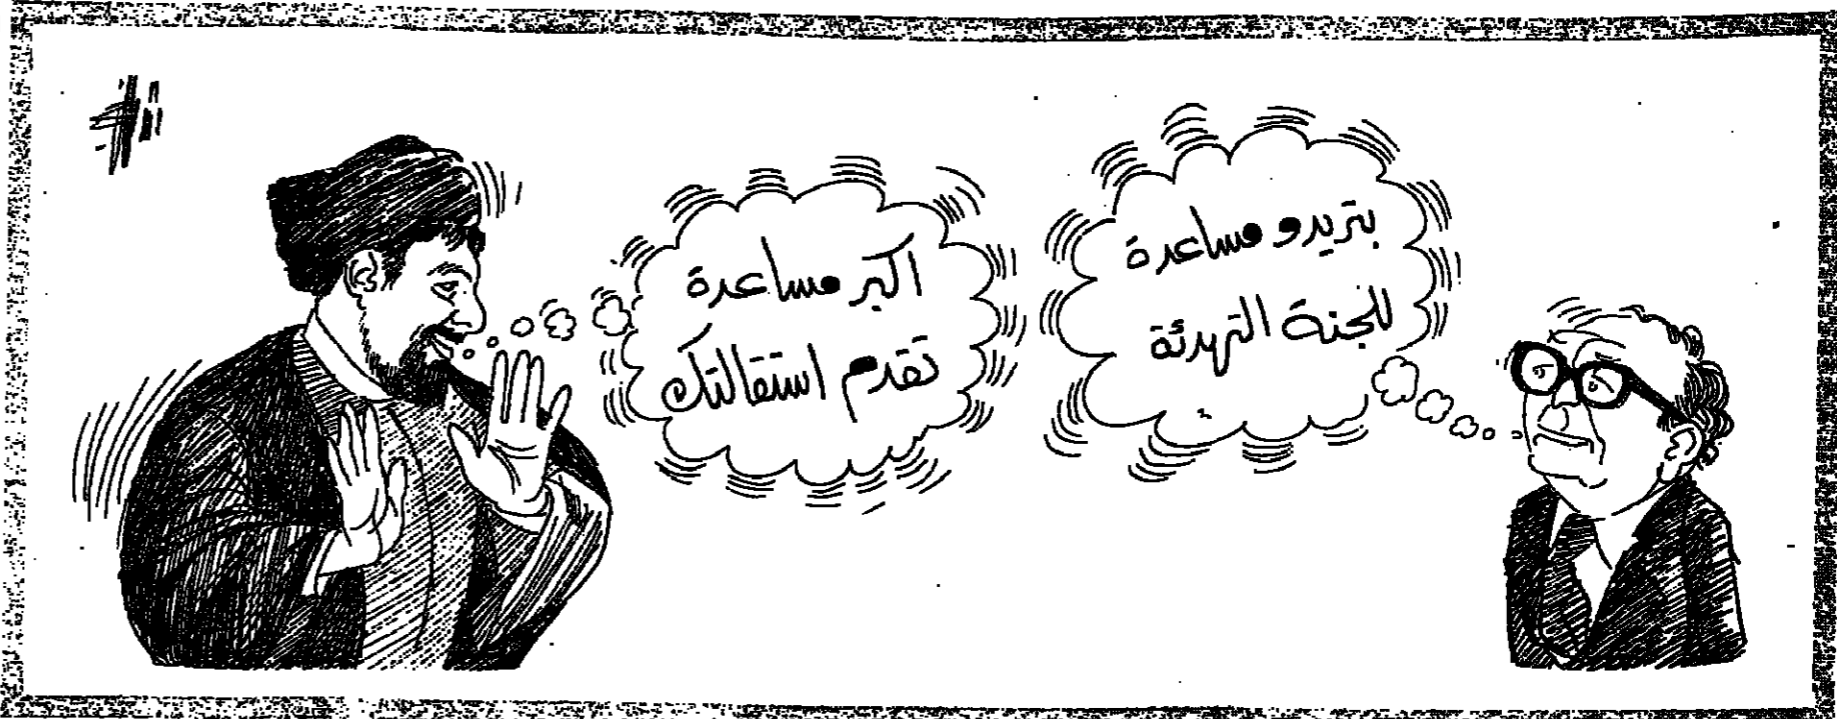 بتريدو مساعدة
للجنة التهدئة
اكبر مساعدة
تقدم استقالتك